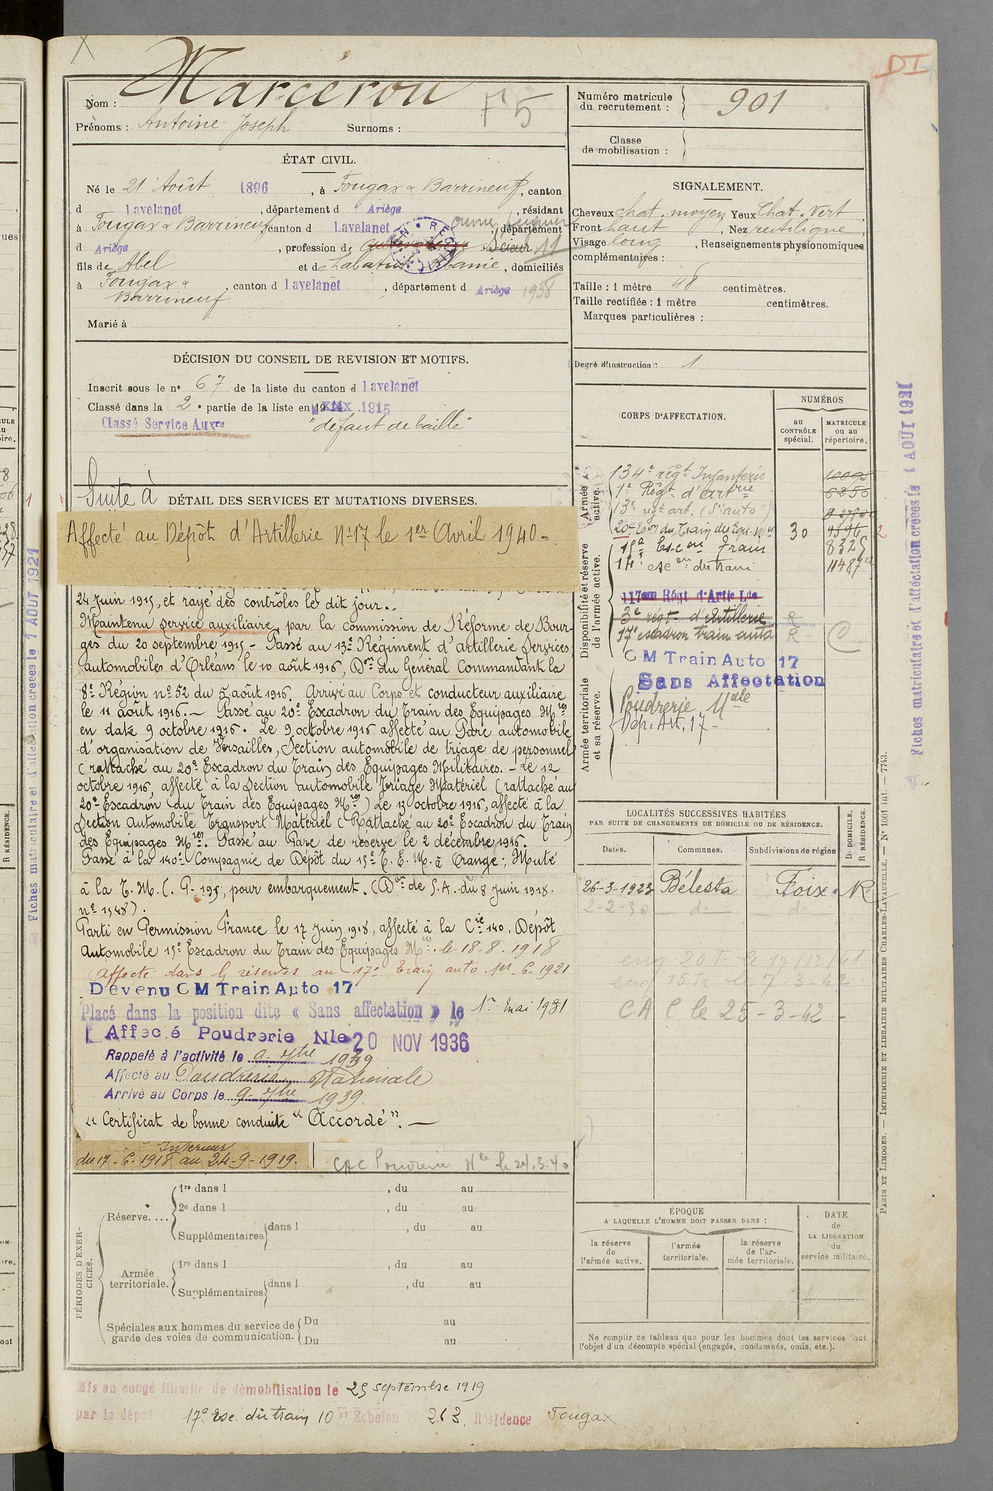 X
DI
Nom : Marcérou
F 5
Prénoms : Antoine Joseph Surnoms :
Numéro matricule du recrutement : 901
Classe de mobilisation :
ÉTAT CIVIL.
Né le 21 Août 1896, à Fougax & Barrineuf, canton
d Lavelanet, département d Ariège, résidant
à Fougax & Barrineuf, canton d Lavelanet, département
d Ariège, profession de
fils de Abel et de domiciliés
à Fougax & Barrineuf, canton d Lavelanet, département d Ariège 1938
Marié à
SIGNALEMENT.
Cheveux chat. moyen Yeux Chat. Vert
Front haut, Nez rectiligne
Visage long, Renseignements physionomiques
complémentaires :
Taille : 1 mètre 48 centimètres.
Taille rectifiée : 1 mètre centimètres.
Marques particulières :
Degré d'instruction : 1
DÉCISION DU CONSEIL DE REVISION ET MOTIFS.
Inscrit sous le n° 67 de la liste du canton d Lavelanet
Classé dans la 2e partie de la liste en 1915
Classé Service Auxre "défaut de taille"
Suite à DÉTAIL DES SERVICES ET MUTATIONS DIVERSES.
Affecté au Dépôt d'Artillerie N°17 le 1er Avril 1940 -
24 juin 1915, et rayé des contrôles le dit jour.
Maintenu service auxiliaire, par la commission de Réforme de Bour-
ges du 20 septembre 1915 - Passé au 13e Régiment d'artillerie Services
automobiles d'Orléans le 10 août 1916, Don du Général Commandant la
8e Région n° 52 du 5 août 1916. Arrivé au Corps et conducteur auxiliaire
le 11 août 1916. - Passé au 20e Escadron du Train des Equipages Mres
en date 9 octobre 1916. Le 9 octobre 1916 affecté au Parc automobile
d'organisation de Versailles, Section automobile de triage de personnel
(rattaché au 20e Escadron du Train des Equipages Militaires. - Le 12
octobre 1916, affecté à la Section automobile Triage Matériel (rattaché au
20e Escadron du Train des Equipages Mres) le 13 octobre 1916, affecté à la
Section Automobile Transport Matériel (Rattaché au 20e Escadron du Train
des Equipages Mres. Passé au Parc de réserve le 2 décembre 1916.
Passé à la 140e Compagnie de Dépôt du 15e T. E. M. à Orange; Muté
à la T. M. (. P. 195, pour embarquement. (Don de S.A. du 8 juin 1918.
n° 1548).
Parti en Permission France le 17 juin 1918, affecté à la Cie 140, Dépôt
Automobile 15e Escadron du Train des Equipages Mres le 18-8-1918
Affecté dans les réserves au 17e Train auto 1er-6-1921
Devenu C M Train Auto 17
Placé dans la position dite « Sans affectation » le 1er mai 1931
Affecté Poudrerie Nle 20 NOV 1936
Rappelé à l'activité le 9 7bre 1939
Affecté au Poudrerie Nationale
Arrivé au Corps le 9 7bre 1939.
"Certificat de bonne conduite" "Accordé". -
Intérieur
du 17-6-1918 au 24-9-1919.
CAC Poudrerie Nle le 24.3.40
CORPS D'AFFECTATION.
NUMÉROS
au CONTRÔLE spécial.
MATRICULE ou au répertoire.
Armée active.
134e régt Infanterie
1er Régt d'Artrie 6250
13e régt art. (S. auto)
Disponibilité et réserve de l'armée active.
20e Eson du Train des Equ. Mres 30
15e Escon Train 8325
14e escon du train 11487
117em Régt d'Artie Lde
3e régt d'Artillerie R
17e escadron train auto R C
C M Train Auto 17
Sans Affectation
Armée territoriale et sa réserve.
Poudrerie Nale
Dép. Art. 17 -
LOCALITÉS SUCCESSIVES HABITÉES
PAR SUITE DE CHANGEMENTS DE DOMICILE OU DE RÉSIDENCE.
Dates. Communes. Subdivisions de région D. DOMICILE. R RÉSIDENCE.
26-3-1923 Bélesta Foix R
2-2-30 d° d°
CAC le 25-3-42 -
ÉPOQUE
A LAQUELLE L'HOMME DOIT PASSER DANS :
la réserve de l'armée active. l'armée territoriale. la réserve de l'armée territoriale.
DATE de LA LIBÉRATION du service militaire.
Ne remplir ce tableau que pour les hommes dont les services font
l'objet d'un décompte spécial (engagés, condamnés, omis, etc.).
PÉRIODES D'EXERCICES.
Réserve.... 1re dans l , du au
2e dans l , du au
Supplémentaires dans l , du au
Armée territoriale. 1re dans l , du au
Supplémentaires dans l , du au
Spéciales aux hommes du service de garde des voies de communication. Du au
Du au
Mis en congé illimité de démobilisation le 25 septembre 1919
par le dépôt 17e Esc. du train 10 Echelon N° 263, Résidence Fougax
Fiches matriculaire et d'affectation créées le 1 AOUT 1921
Fiches matriculaire et d'affectation créées le 1 AOUT 1921
PARIS ET LIMOGES. — IMPRIMERIE ET LIBRAIRIE MILITAIRES CHARLES-LAVAUZELLE. — N° 1001 int. — 7743.
R RÉSIDENCE.